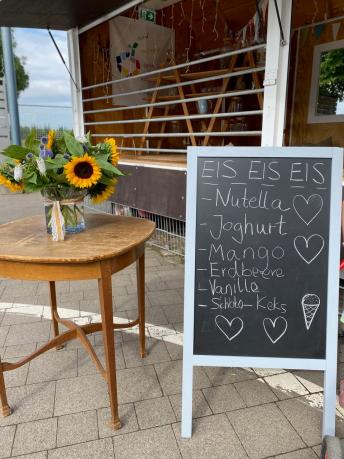 EIS EIS EIS
- Nutella
- Joghurt
- Mango
- Erdbeere
- Vanilla
- Schoko-Keks